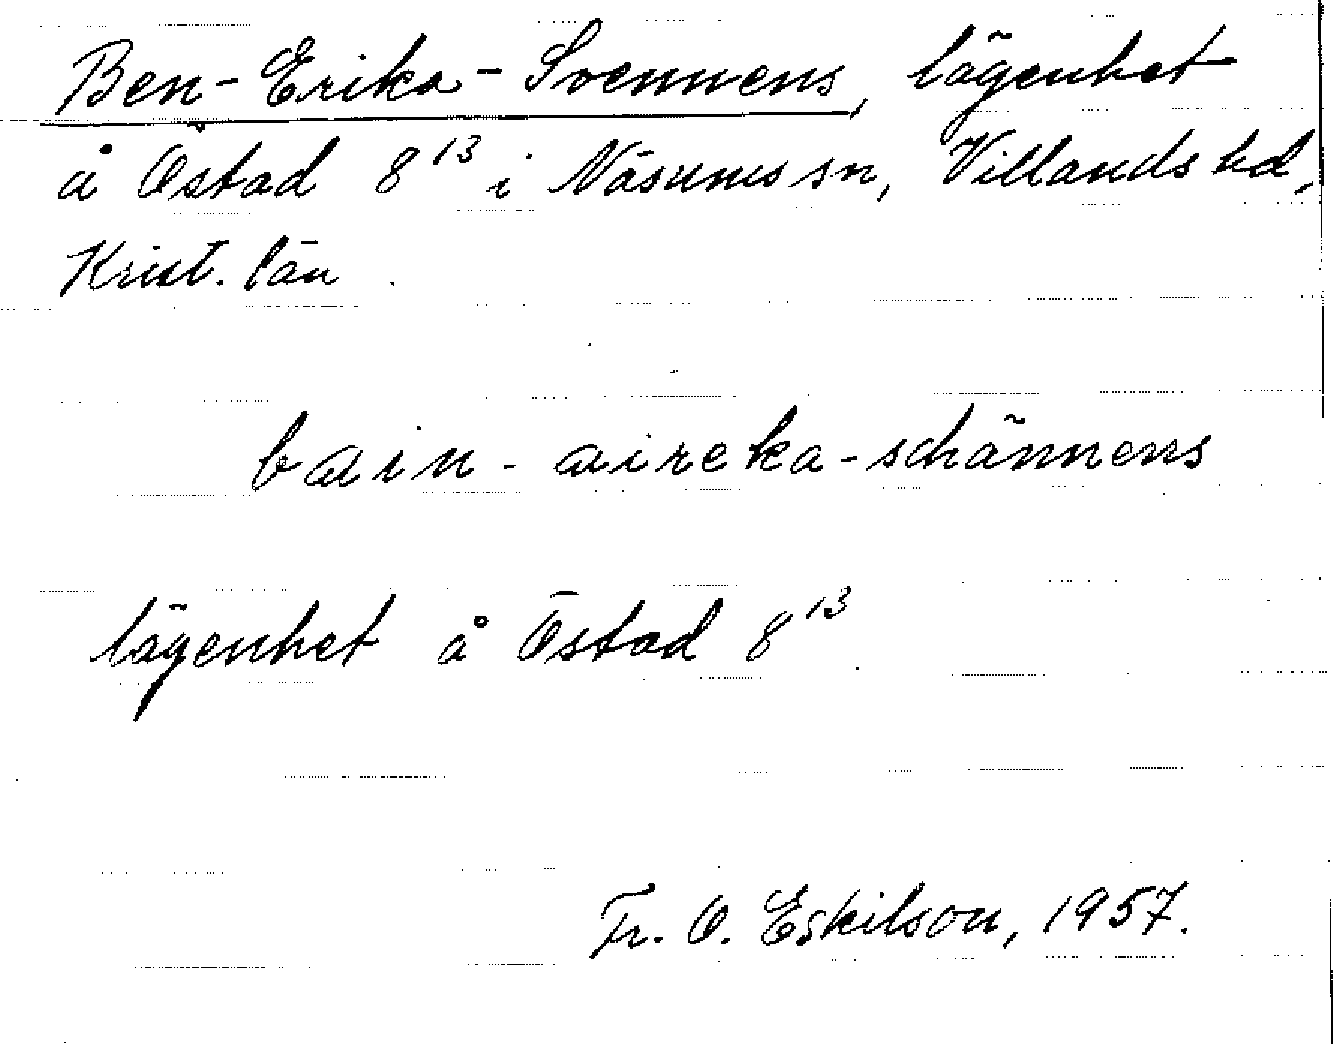 Ben-Erika-Svennens, lägenhet
å Östad 8¹³ i Näsums sn, Villands hd,
Krist. län.
bain-aireka-schännens
lägenhet å Östad 8¹³
Fr. O. Eskilson, 1957.